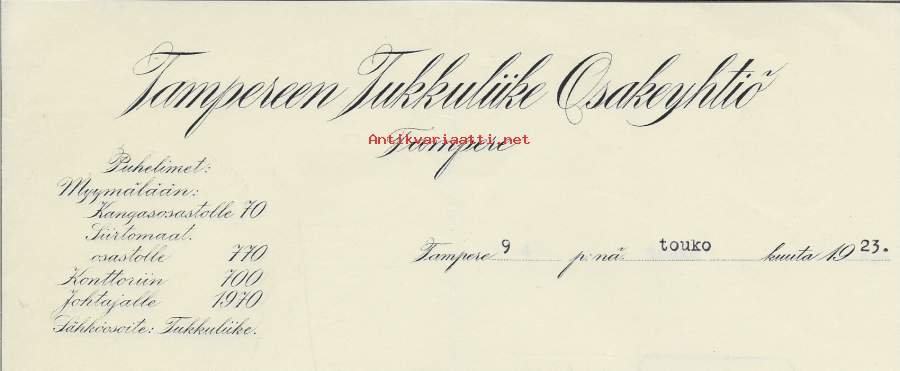 Tampereen Tukkuliike Osakeyhtiö
Antikvariaatti.net
Tampere
Puhelimet:
Myymälään:
Kangasosastolle 70
Siirtomaat.
osastolle 770
Konttoriin 700
Johtajalle 1970
Sähköosoite: Tukkuliike.
Tampere 9 p:nä touko kuuta 1923.